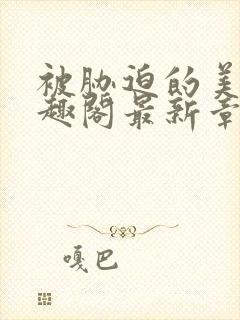 被胁迫的美
趣阁最新章
嘎巴